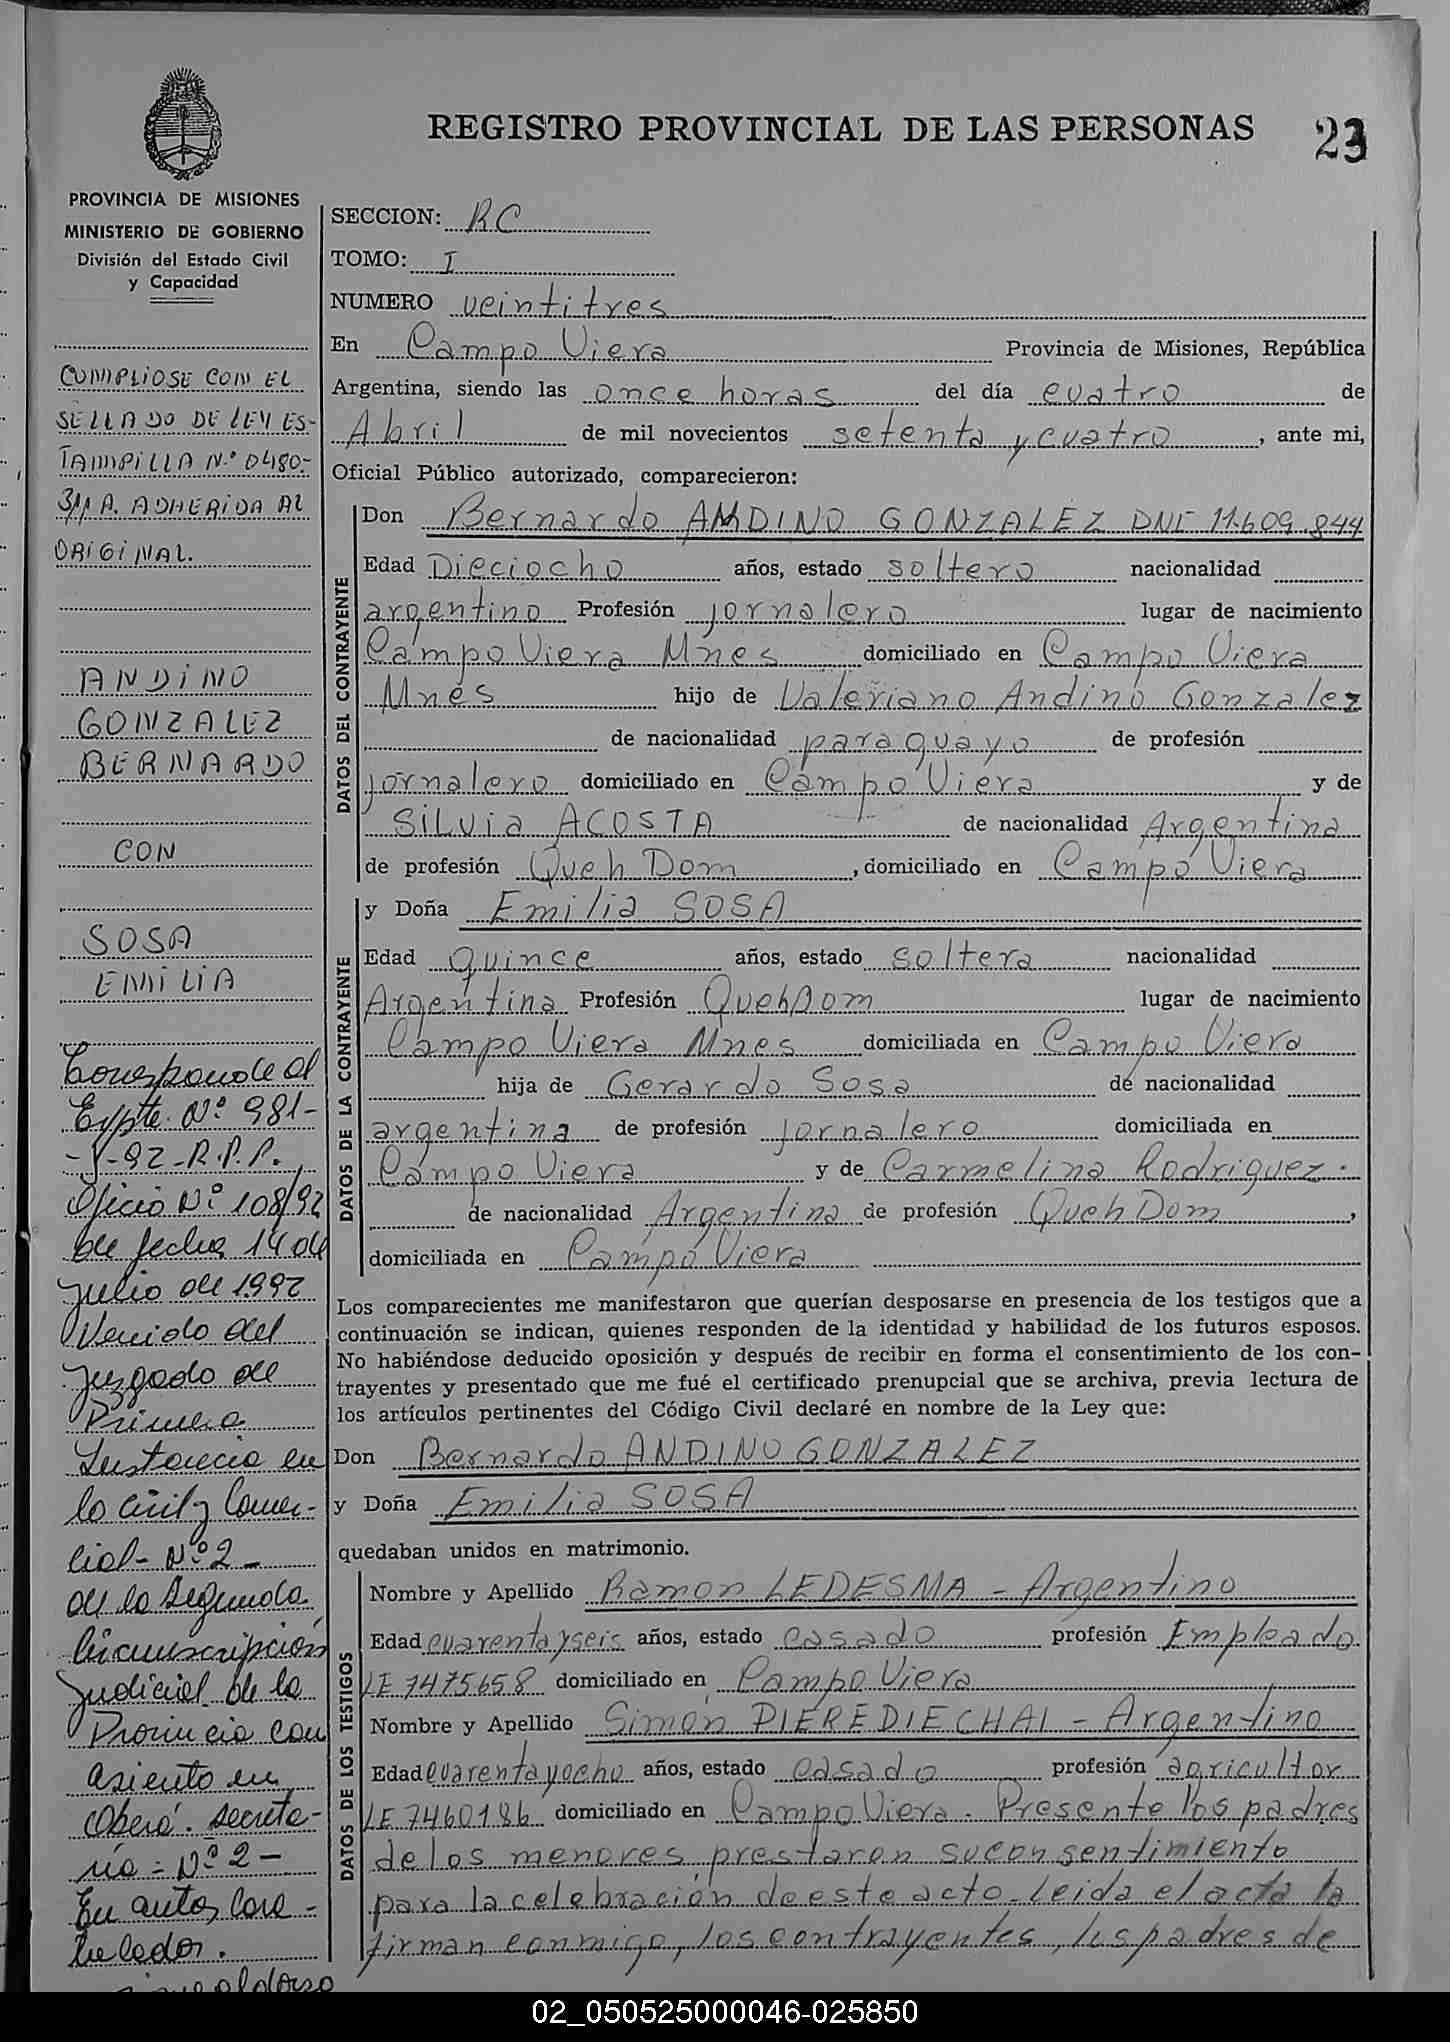 REGISTRO PROVINCIAL DE LAS PERSONAS
23
PROVINCIA DE MISIONES
MINISTERIO DE GOBIERNO
División del Estado Civil
y Capacidad
CUMPLIOSE CON EL
SELLADO DE LEY ES-
TAMPILLA N.º 0480-
311 A. ADHERIDA AL
ORIGINAL.
ANDINO
GONZALEZ
BERNARDO
CON
SOSA
EMILIA
Corresponde al
Expte. Nº 981-
-92-R.P.P.
Oficio Nº 108/92
de fecha 14 de
Julio de 1992
Venido del
Juzgado de
Primera
Instancia en
lo Civil y Comer-
cial- Nº 2-
de la Segunda
Circunscripción
Judicial de la
Provincia con
asiento en
Oberá. Secreta-
ría= Nº 2-
En autos Cara-
tulados.
Sigue al dorso
SECCION: RC
TOMO: I
NUMERO veintitres
En Campo Viera Provincia de Misiones, República
Argentina, siendo las once horas del día cuatro de
Abril de mil novecientos setenta y cuatro, ante mi,
Oficial Público autorizado, comparecieron:
DATOS DEL CONTRAYENTE
Don Bernardo ANDINO GONZALEZ DNI 11.609.844
Edad Dieciocho años, estado soltero nacionalidad
argentino Profesión jornalero lugar de nacimiento
Campo Viera Mnes domiciliado en Campo Viera
Mnes hijo de Valeriano Andino Gonzalez
de nacionalidad paraguayo de profesión
jornalero domiciliado en Campo Viera y de
Silvia ACOSTA de nacionalidad Argentina
de profesión Queh Dom, domiciliado en Campo Viera
DATOS DE LA CONTRAYENTE
y Doña Emilia SOSA
Edad quince años, estado soltera nacionalidad
Argentina Profesión Queh Dom lugar de nacimiento
Campo Viera Mnes domiciliada en Campo Viera
hija de Gerardo Sosa de nacionalidad
argentina de profesión jornalero domiciliada en
Campo Viera y de Carmelina Rodriguez.
de nacionalidad Argentina de profesión Queh Dom,
domiciliada en Campo Viera
Los comparecientes me manifestaron que querían desposarse en presencia de los testigos que a
continuación se indican, quienes responden de la identidad y habilidad de los futuros esposos.
No habiéndose deducido oposición y después de recibir en forma el consentimiento de los con-
trayentes y presentado que me fué el certificado prenupcial que se archiva, previa lectura de
los artículos pertinentes del Código Civil declaré en nombre de la Ley que:
Don Bernardo ANDINO GONZALEZ
y Doña Emilia SOSA
quedaban unidos en matrimonio.
DATOS DE LOS TESTIGOS
Nombre y Apellido Ramon LEDESMA - Argentino
Edad cuarenta y seis años, estado casado profesión Empleado
LE 7475658 domiciliado en Campo Viera
Nombre y Apellido Simón PIEREDIECHAI - Argentino
Edad cuarenta y ocho años, estado casado profesión agricultor
LE 7460186 domiciliado en Campo Viera. Presente los padres
de los menores prestaron su consentimiento
para la celebración de este acto. Leida el acta la
firman conmigo, los contrayentes, los padres de
02_050525000046-025850